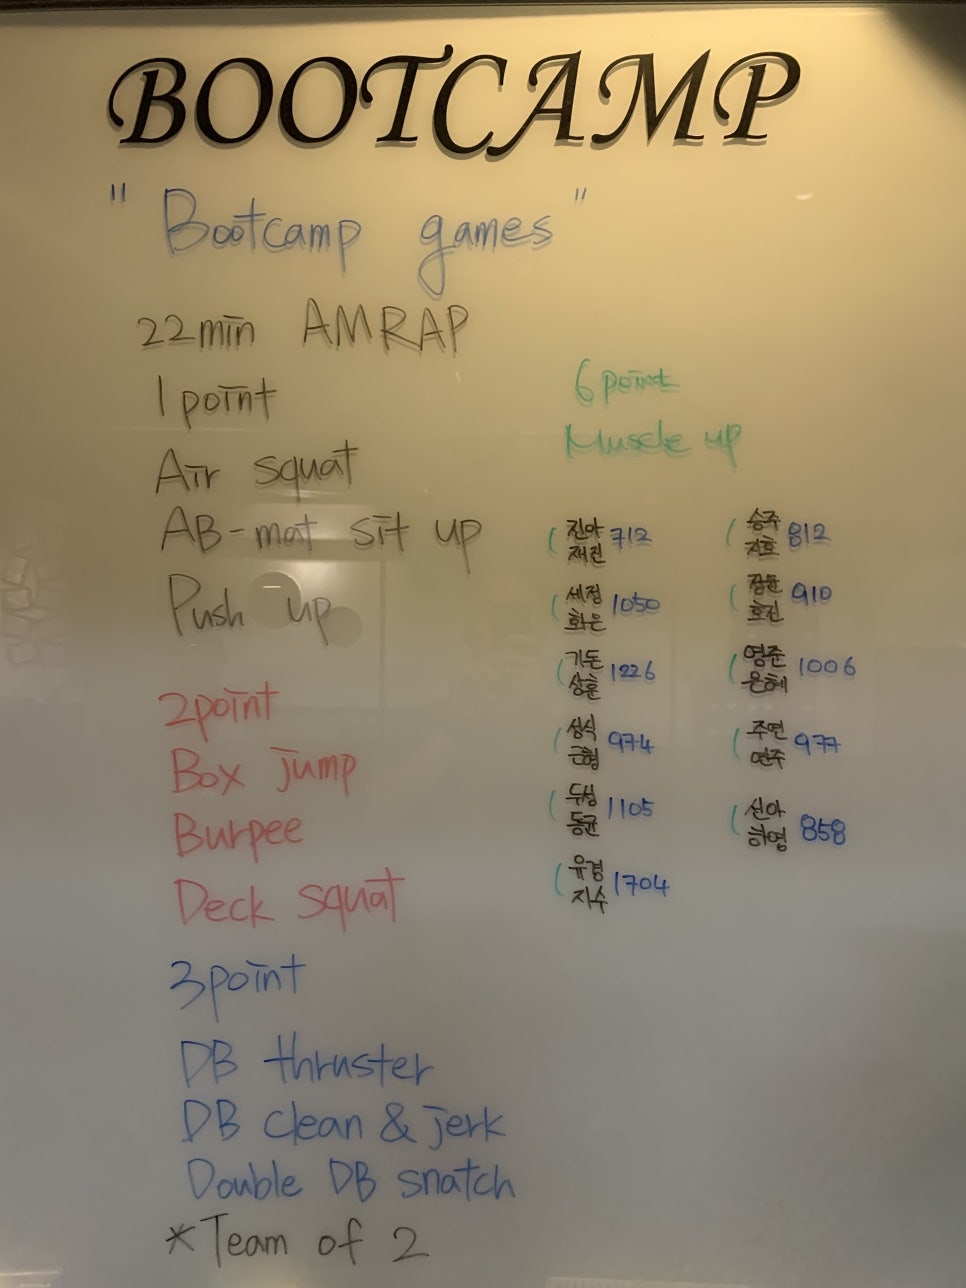 BOOTCAMP
" Bootcamp games "
22min AMRAP
1 point
Air squat
AB-mat sit up
Push up
2point
Box jump
Burpee
Deck squat
3point
DB thruster
DB clean & jerk
Double DB snatch
*Team of 2
6 point
Muscle up
( 진아 712
재린
( 세정 1050
화은
( 기돈 1226
상훈
( 성식 974
근형
( 두성 1105
동균
( 유경 1704
지수
( 승주 812
지호
( 910
호진
( 영준 1006
은혜
( 주연 977
연주
( 신아 858
하영